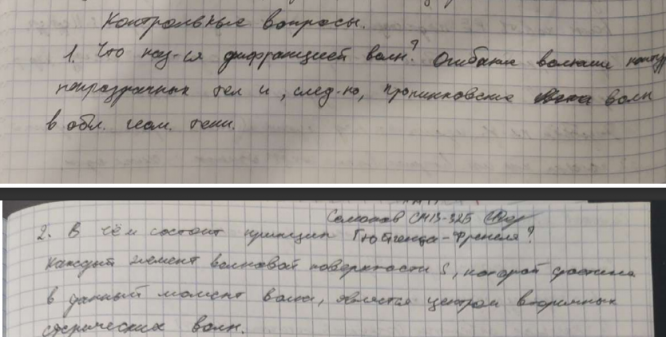 Контрольные вопросы.
1. Что наз-ся дифракцией волн? Огибание волнами
непрозрачных тел и, след-но, проникновение волн
в обл. геом. тени.
СМ13-32Б
2. В чём состоит принцип Гюйгенса-Френеля?
Каждый элемент волновой поверхности S, которой достигла
в данный момент волна, является центром вторичных
сферических волн.